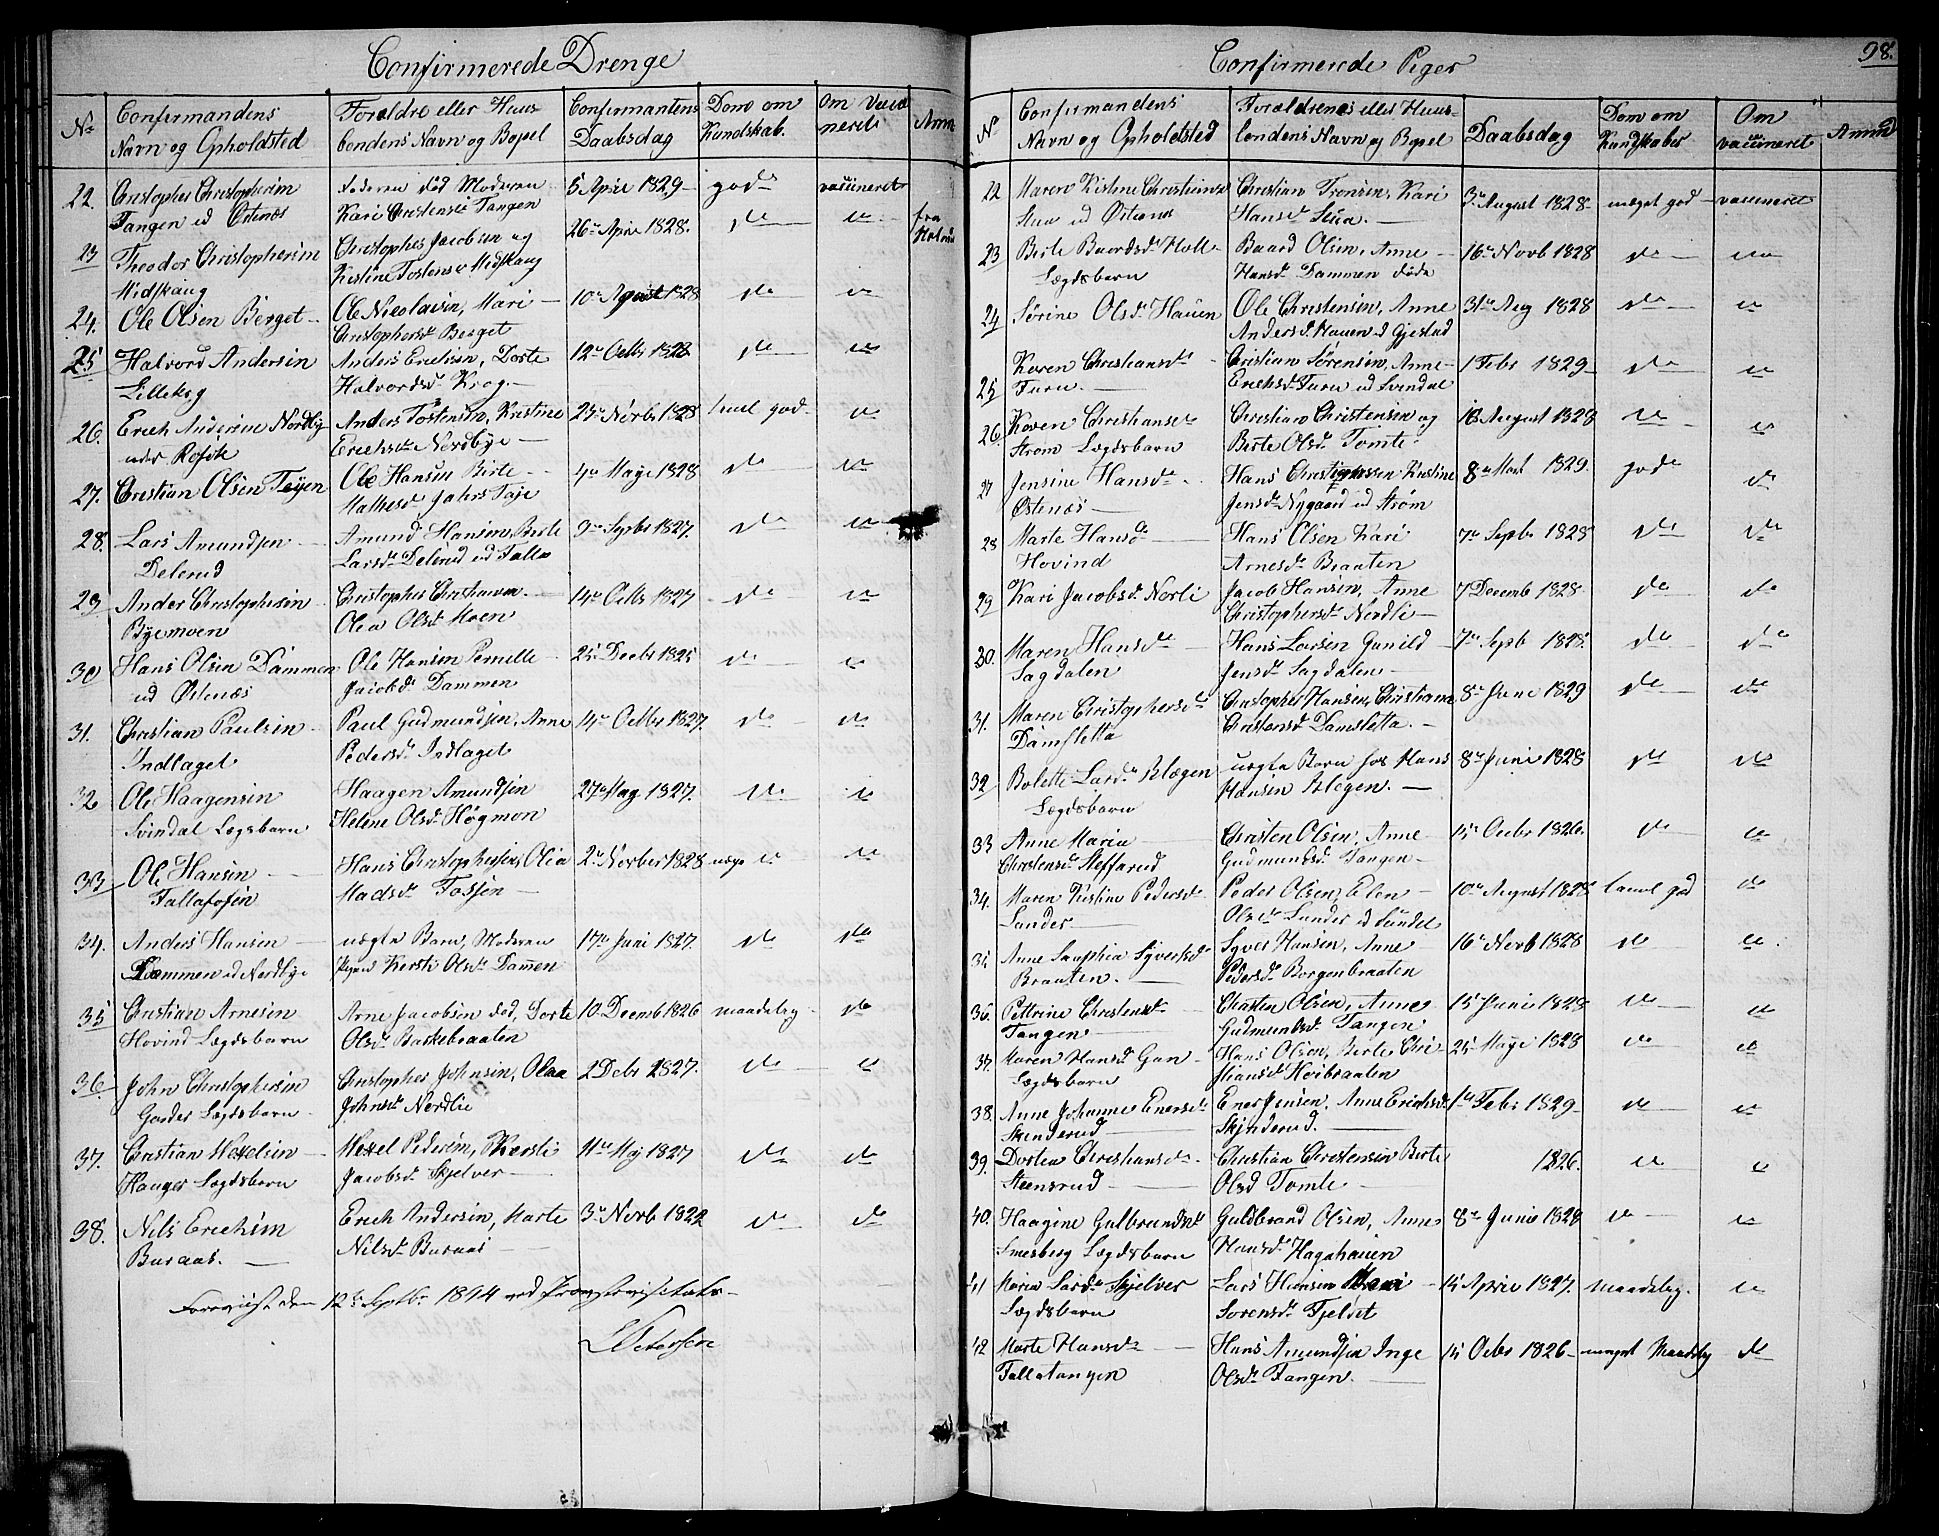 Confirmerede Drenge
No
Confirmandens
Navn og Opholdsted
Forældre eller Huus
bondens Navn og Bopel
Confirmantens
Daabsdag
Dom om
Kundskab.
Om Vacci
neret
Anm
22. Christopher Christophersen
Tangen ud Ostenæs
Faderen død Moderen
Kari Christensd Tangen
5 April 1829 god vaccineret
23 Theodor Christophersen
Midskaug
Christopher Jacobsen og
Kistine Tostensd Midskaug
26 April 1828. do do fra
Holand
24. Ole Olsen Berget
Ole Nicolaisen, Mari
Christophersd Berget
10 August 1828 do do
25 Halvord Andersen
Lillekrog
Anders Erichsen, Dorte
Halvordsd Krog
12 Octb 1828 do do
26. Erich Andersen Nordby
under Rosok
Anders Tostensen, Kristine
Erichsd Nordbye
23 Novb 1828 temel god do
27. Christian Olsen Tøyen
Ole Hansen Birte
Mathesd Jahrs Tøje
4 Maye 1828 do do
28. Lars Amundsen
Delerud
Amund Hansen, Berte
Larsd Delerud ud Falla
9 Septb 1827. do do
29 Ander Christophersen
Byemoen
Christopher Christiansen
Olea Olsd Moen
14 Octb 1827 do do
30 Hans Olsen Dammen
ud Østenæs
Ole Hansen Pernille
Jacobsd Dammen
25 Decbr 1825 do do
31. Christian Paulsen
Indlaget
Paul Gudmundsen, Anne
Pedersd Indlaget
14 Octbr 1827. do do
32 Ole Haagensen
Svindal Lægsbarn
Haagen Amundsen
Helene Olsd Høgmon
27 May 1827. do do
33 Ole Hansen
Fallafosen
Hans Christophersen, Olia
Madsd Fossen
2 Novber 1828 do
34. Anders Hansen
Dammen ud Nordbye
uægte Barn, Moderen
Pigen Kersti Olsd Dammen
17 Juni 1827. do do
35 Christian Arnesen
Hovind Lægdsbarn
Arne Jacobsen død, Dorte
Olsd Baskebraaten
10 Decemb 1826 maadelig do
36 John Christophersen
Garder Lægdsbarn
Christopher Johnsen, Olaa
Johnsd Nordlie
2 Debr 1827. do do
37. Christian Mexelsen
Hauger Lægdsbarn
Mexel Pedersen, Kersti
Jacobsd Skjelver
11 Maj 1827 do do
38. Nils Erichsen
Buraas.
Erich Andersen, Marte
Nilsd Buraas
3 Novb 1822 do do
Foreviist den 12 Septbr 1844 ved Provstevisitats

Confirmerede Piger
98.
No
Confirmandens
Navn og Opholdsted
Forældrenes eller Huus
bondens Navn og Bopel
Daabsdag
Dom om
Kundskaber
Om
vaccineret
Anmd
22 Maren Kistine Christiansd
Stua ud Østenæs
Christian Tronsen, Kari
Hansd Stua
3 August 1828 meget god vaccineret
23 Berte Baardsd Holt
Lægdsbarn
Baard Olsen, Anne
Hansd Dammen døde
16 Novb 1828 do do
24 Sørine Olsd Hauen
Ole Christensen, Anne
Andersd Hauen ud Gjestad
31 Aug 1828 do do
25 Karen Christiansd
Furu
Christian Sørensen, Anne
Erichsd Furu ud Svendal
1 Febr 1829 do do
26 Karen Christiansd
Strøm Lægdsbarn
Christian Christensen og
Berte Olsd Tomte
18 August 1828 do do
27 Jensine Hansd
Østenæs
Hans Christiansen Kristine
Jensd Nygaard ud Strøm
8 Mart 1829. god do
28 Marte Hansd
Hovind
Hans Olsen Kari
Arnesd Braaten
7 Septbr 1828 do do
29 Kari Jacobsd Norli
Jacob Hansen, Anne
Christophersd Nordli
7 Decemb 1828 do do
30. Maren Hansd
Sagdalen
Hans Larsen Gunild
Jensd Sagdalen
7 Septb 1828. do do
31. Maren Christophersd
Damsletta
Christopher Hansen, Christiane
Christensd Damsletta
8 June 1829 do do
32 Bolette Larsd Blegen
Lægdsbarn
uægte Barn hos Hans
Hansen Blegen.
8 Juni 1828 do do
33 Anne Maria
Christensd Steffarud
Christen Olsen, Anne
Gudmundsd Tangen
15 Octbr 1826. do do
34. Maren Kistine Pedersd
Sander
Peder Olsen, Elen
Olsd Sander ud Sundet
10 August 1828 temel god do
35 Anne Sauphia Syversd
Braaten.
Syver Hansen, Anne
Pedersd Borgenbraaten
16 Novb 1828 do do
36. Pettrine Christensd
Tangen
Christen Olsen, Anne
Gudmundsd Tangen
15 Juni 1828 do do
37. Karen Hansd Gan
Lægdsbarn
Hans Olsen, Berte Chri
stiansd Høibraaten
25 Maye 1828 do do
38. Anne Johanne Enersd
Skinderud
Ener Jensen, Anne Erichsd
Skjnderud.
1 Febr 1829 do do
39. Dortea Christiansd
Steensrud
Christian Christensen Berte
Olsd Tomte
1826. do do
40. Haagine Gulbrandsd
Smesberg Lægdsbarn
Guldbrand Olsen, Anne
Hansd Hagahauen
8 Junie 1828 do do
41 Maria Larsd Skjelver
Lægdsbarn
Lars Hansen Mari
Sørensd Fjeldet
15 Aprie 1827. maadelig. do
42 Marte Hansd
Fallatangen
Hans Amundsen Inge
Olsd Tangen.
15 Octbr 1826 meget Maadelig do